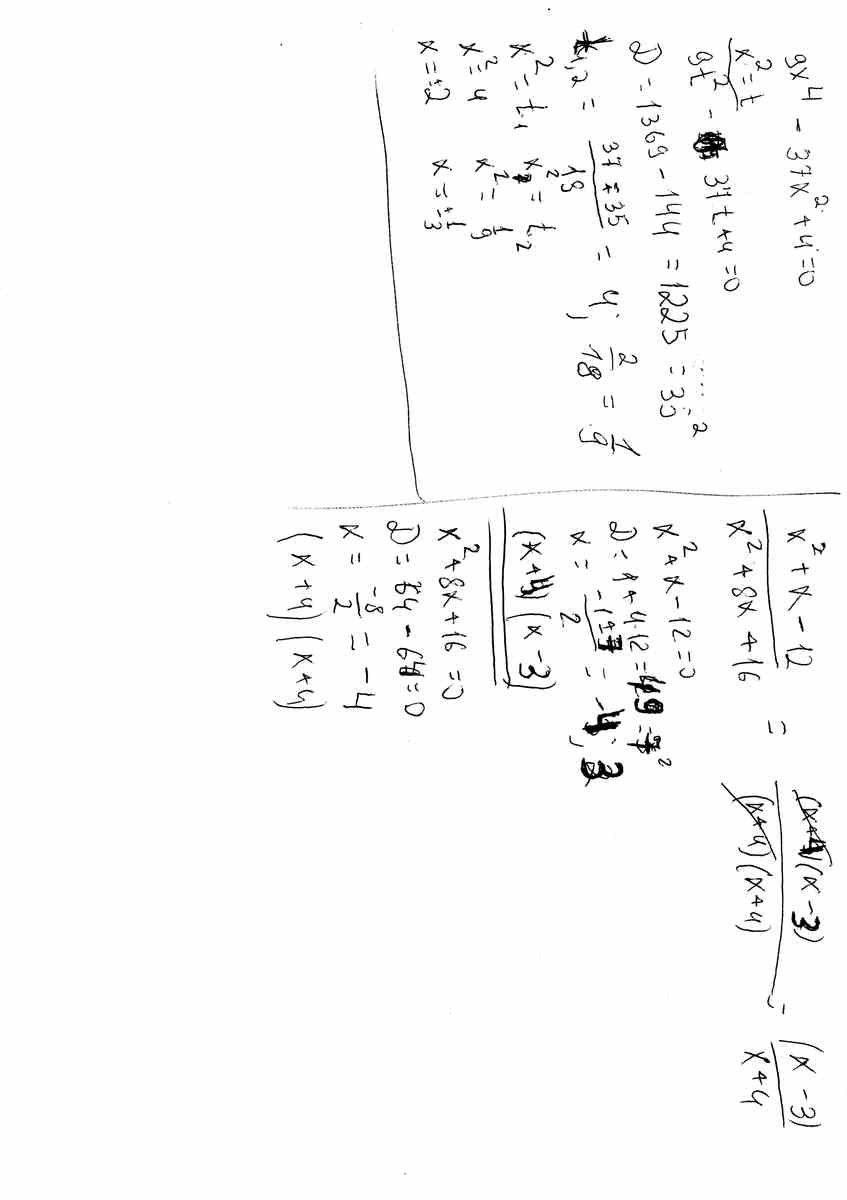 9x⁴ - 37x² + 4 = 0
x² = t
9t² - 37t + 4 = 0
D = 1369 - 144 = 1225 = 35²
t₁,₂ = (37 ± 35)/18 = 4; 2/18 = 1/9
x² = t₁ x² = t₂
x² = 4 x² = 1/9
x = ±2 x = ±1/3
(x² + x - 12)/(x² + 8x + 16) = ((x+4)(x-3))/((x+4)(x+4)) = (x-3)/(x+4)
x² + x - 12 = 0
D = 1 + 4·12 = 49 = 7²
x = (-1 ± 7)/2 = -4; 3
(x+4)(x-3)
x² + 8x + 16 = 0
D = 64 - 64 = 0
x = -8/2 = -4
(x+4)(x+4)